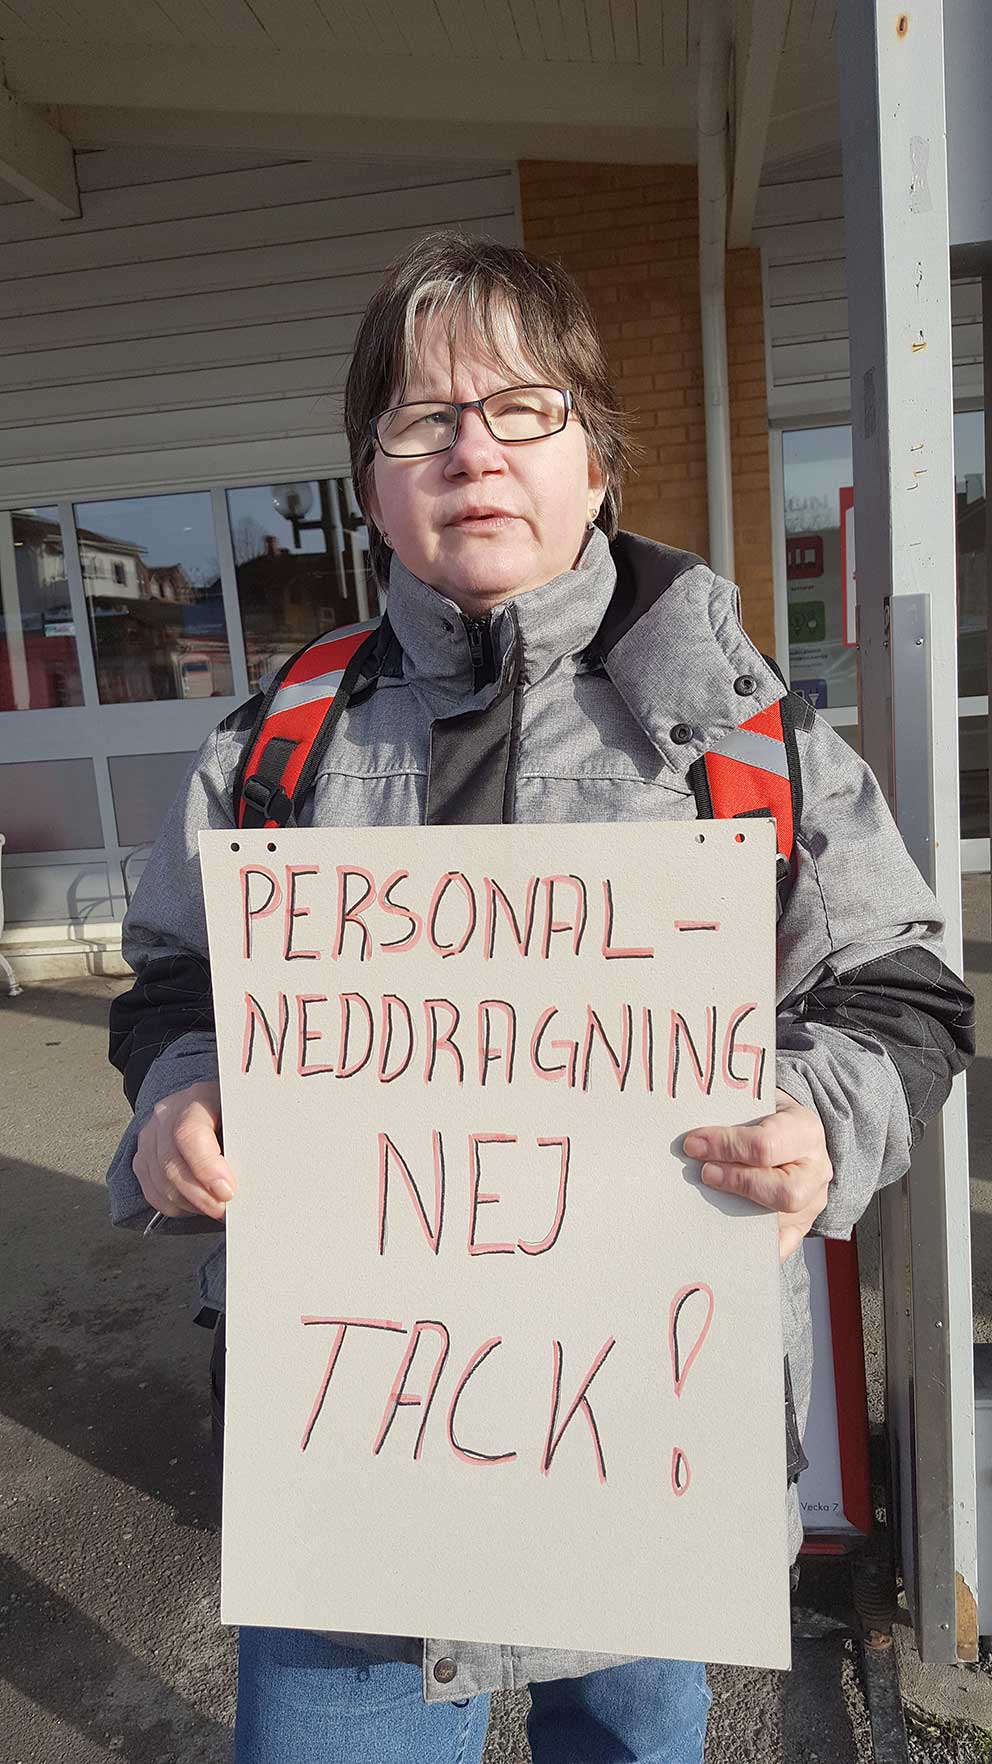 PERSONAL-
NEDDRAGNING
NEJ
TACK!
Vecka 7